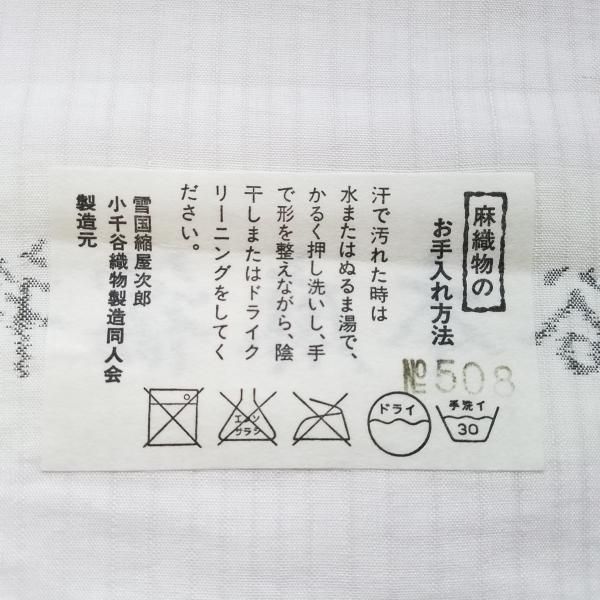 麻織物の
お手入れ方法
汗で汚れた時は
水またはぬるま湯で、
かるく押し洗いし、手
で形を整えながら、陰
干しまたはドライク
リーニングをしてく
ださい。
雪国縮屋次郎
小千谷織物製造同人会
製造元
№508
手洗イ
30
ドライ
エンソ
サラシ